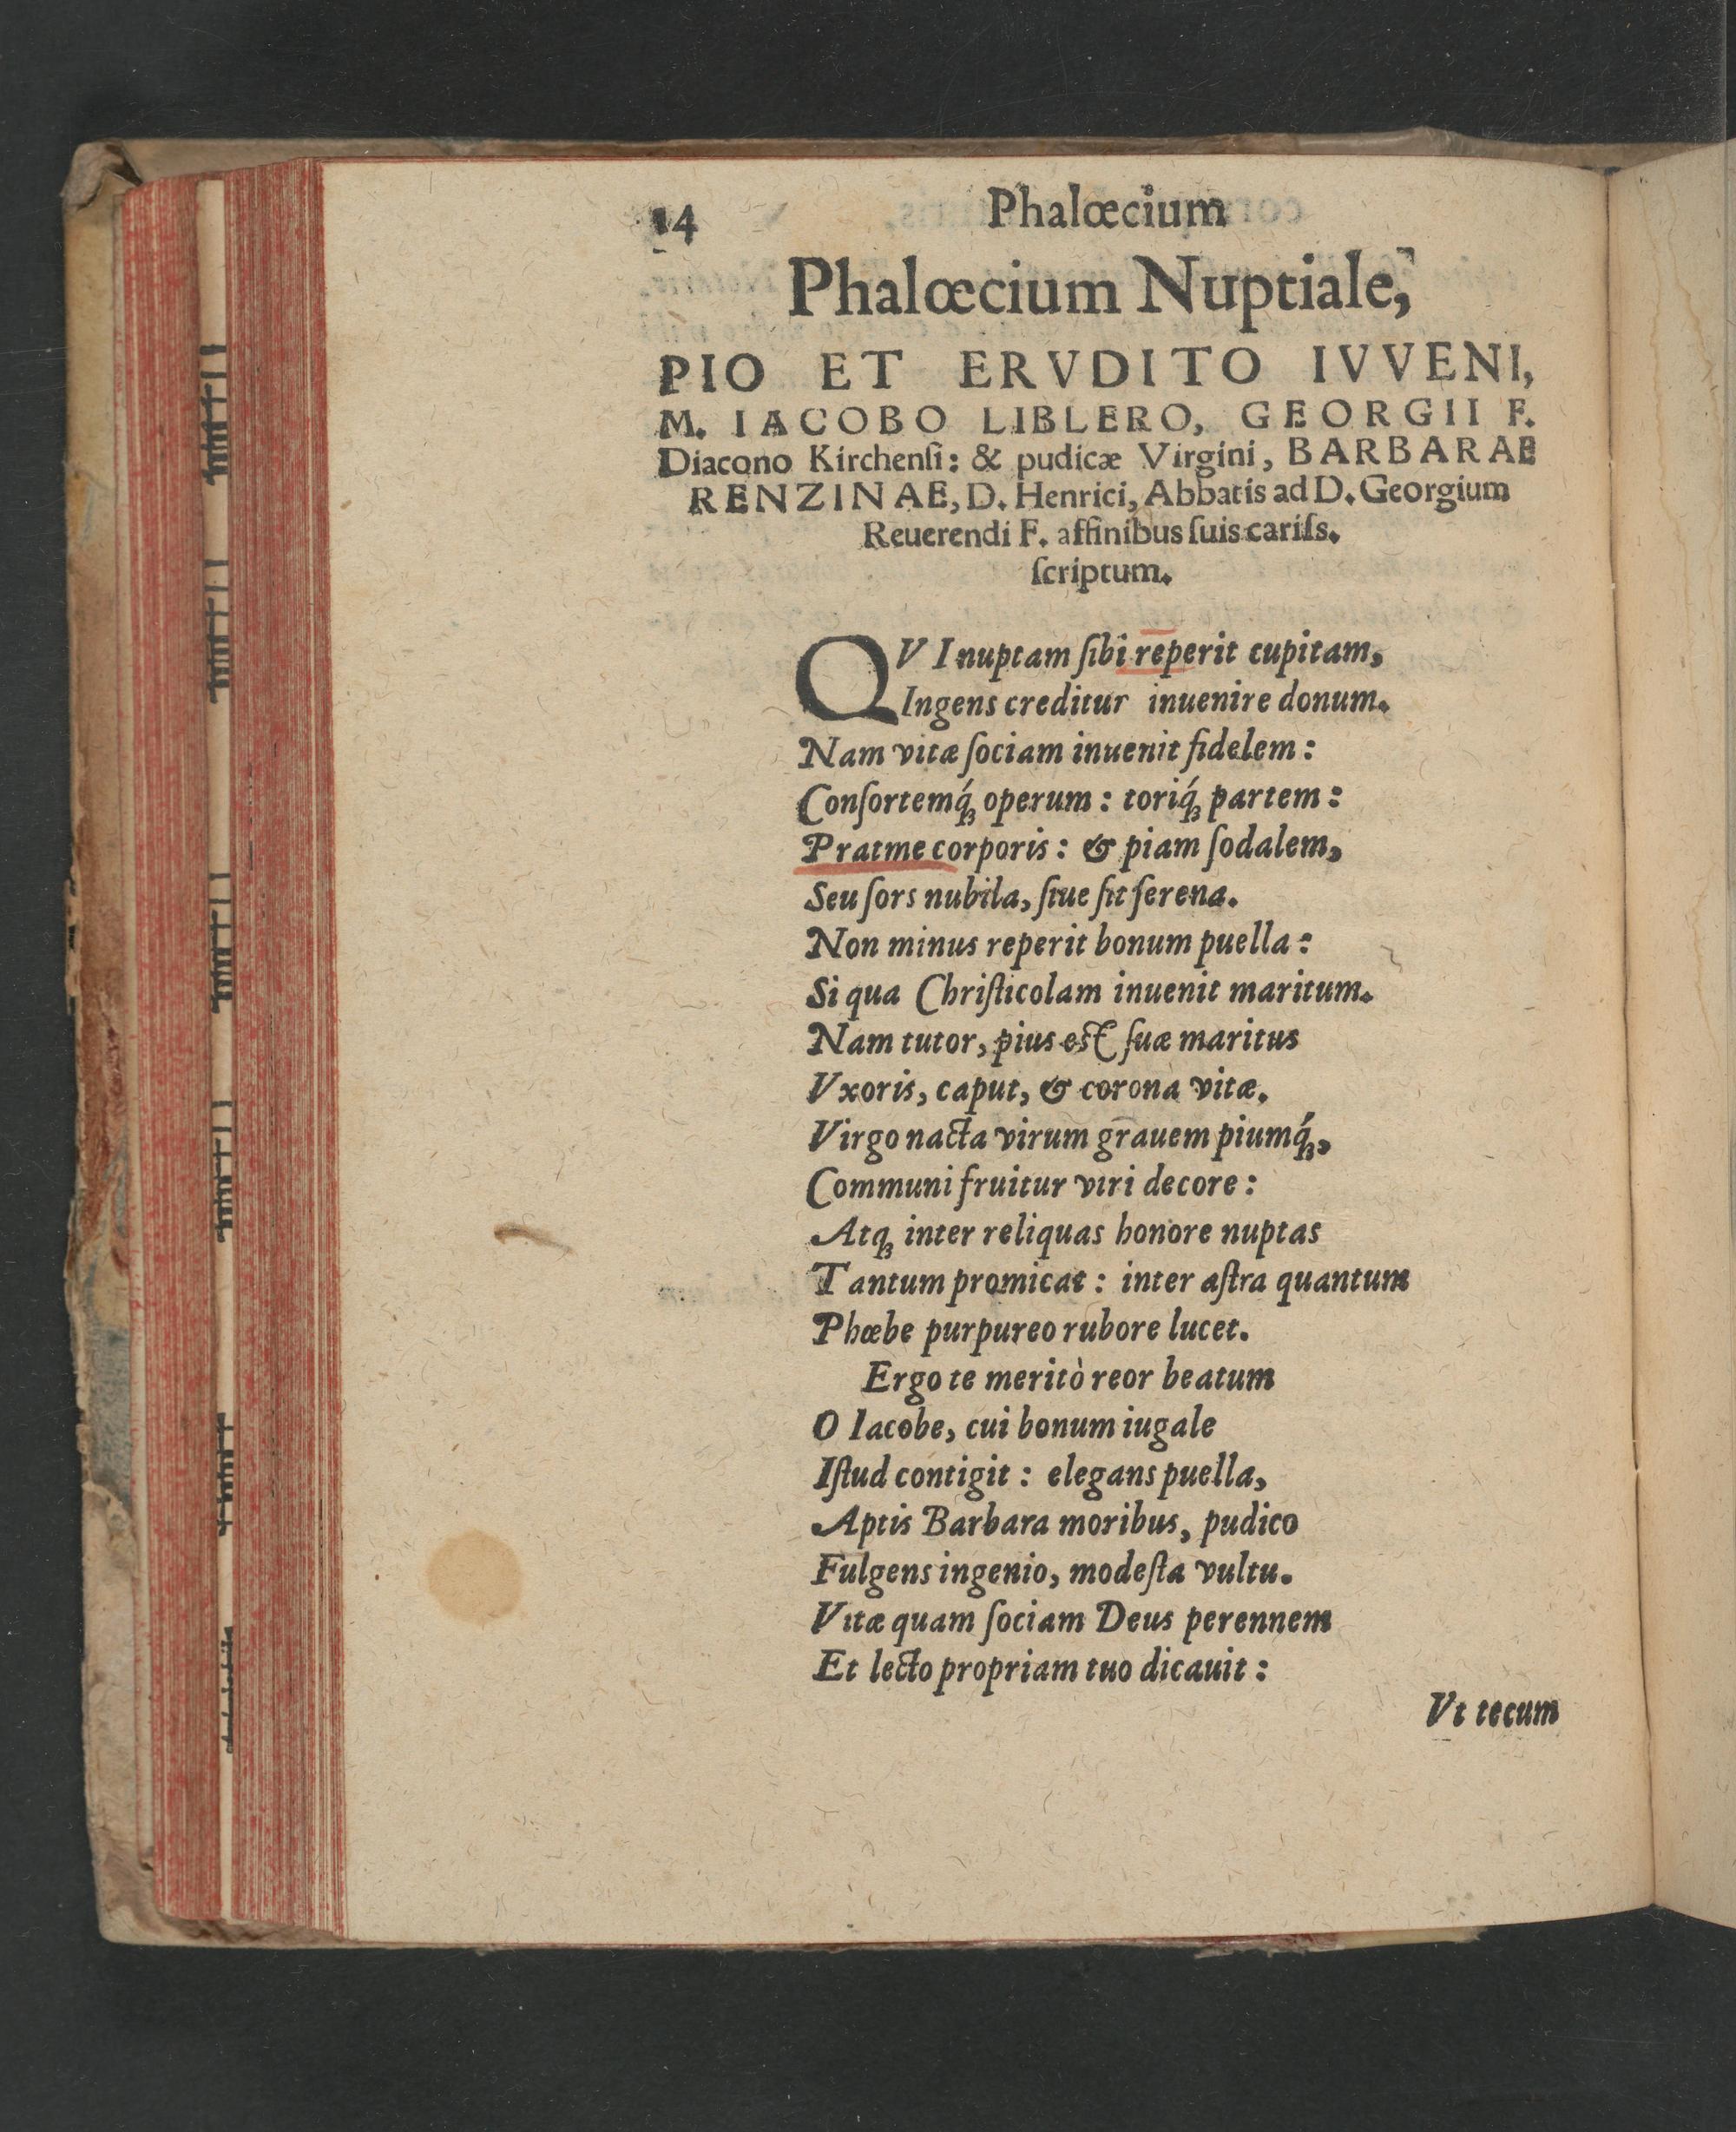 14 Phalœcium
Phalœcium Nuptiale,
PIO ET ERVDITO IVVENI,
M. IACOBO LIBLERO, GEORGII F.
Diacono Kirchenſi: & pudicæ Virgini, BARBARAE
RENZINAE, D. Henrici, Abbatis ad D. Georgium
Reuerendi F. affinibus ſuis cariſs.
ſcriptum.
QVI nuptam ſibi reperit cupitam,
Ingens creditur inuenire donum.
Nam vitæ ſociam inuenit fidelem:
Conſortemq́ꝫ operum: toriq́ꝫ partem:
Pratme corporis: & piam ſodalem,
Seu ſors nubila, ſiue ſit ſerena.
Non minus reperit bonum puella:
Si qua Chriſticolam inuenit maritum.
Nam tutor, pius est ſuæ maritus
Vxoris, caput, & corona vitæ.
Virgo nacta virum grauem piumq́ꝫ,
Communi fruitur viri decore:
Atqꝫ inter reliquas honore nuptas
Tantum promicat: inter aſtra quantum
Phœbe purpureo rubore lucet.
Ergo te meritò reor beatum
O Iacobe, cui bonum iugale
Iſtud contigit: elegans puella,
Aptis Barbara moribus, pudico
Fulgens ingenio, modeſta vultu.
Vitæ quam ſociam Deus perennem
Et lecto propriam tuo dicauit:
Vt tecum